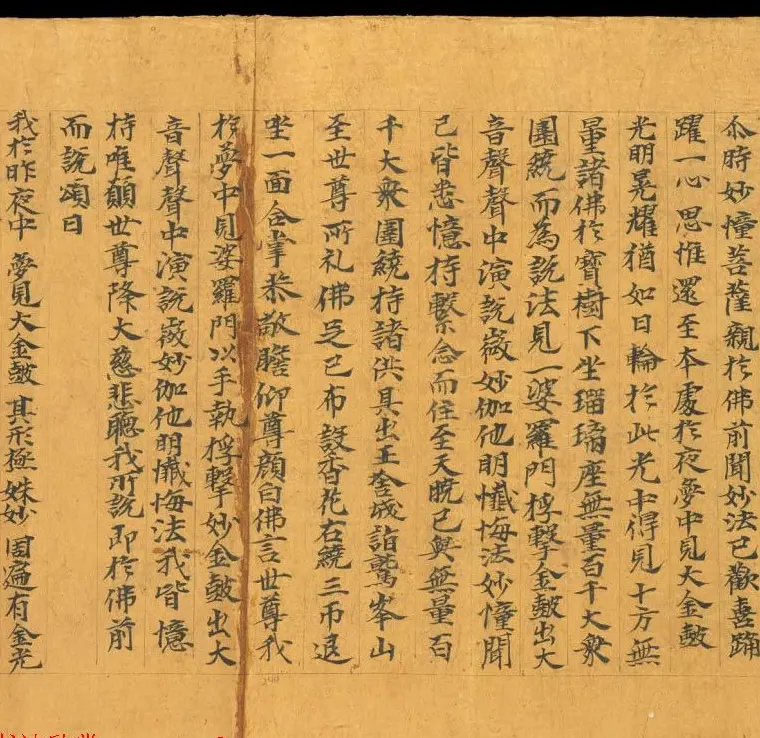 尒時妙憧菩薩親於佛前聞妙法已歡喜踊
躍一心思惟還至本處於夜夢中見大金皷
光明晃耀猶如日輪於此光中得見十方無
量諸佛於寶樹下坐瑠璃座無量百千大衆
圍繞而為說法見一婆羅門桴擊金皷出大
音聲聲中演說微妙伽他明懺悔法妙憧聞
已皆悉憶持繫念而住至天曉已與無量百
千大衆圍繞持諸供具出王舍城詣鷲峯山
至世尊所礼佛足已布設香花右繞三帀退
坐一面合掌恭敬瞻仰尊顏白佛言世尊我
於夢中見婆羅門以手執桴擊妙金皷出大
音聲聲中演說微妙伽他明懺悔法我皆憶
持唯願世尊降大慈悲聽我所說即於佛前
而說頌曰
我於昨夜中 夢見大金皷 其形極姝妙 周遍有金光